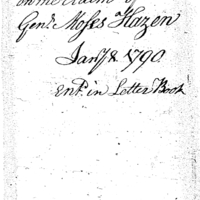 on the Claim of
Genl. Moses Hazen
Jany 8. 1790
Entd. in Letter Book